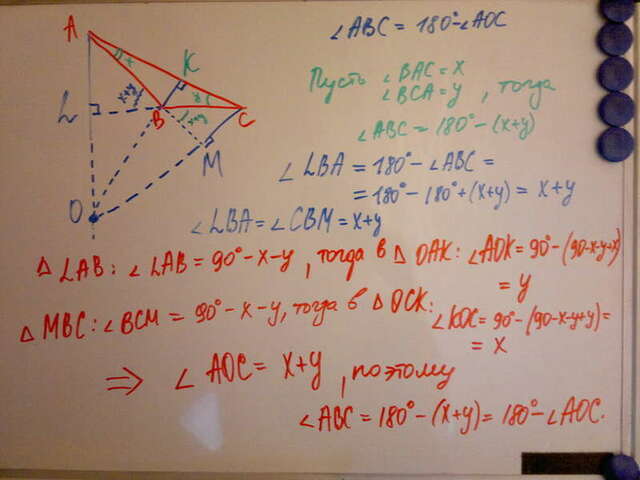 ∠ABC = 180°-∠AOC
Пусть ∠BAC = x
∠BCA = y , тогда
∠ABC = 180° - (x+y)
∠LBA = 180° - ∠ABC =
= 180° - 180° + (x+y) = x+y
∠LBA = ∠CBM = x+y
Δ LAB: ∠LAB = 90° - x - y , тогда в Δ OAK: ∠AOK = 90° - (90-x-y+x)
= y
Δ MBC: ∠BCM = 90° - x - y, тогда в Δ OCK: ∠KOC = 90° - (90-x-y+y) =
= x
⇒ ∠AOC = x+y , поэтому
∠ABC = 180° - (x+y) = 180° - ∠AOC.
A
x
K
L
x+y
B
y
C
x+y
M
O